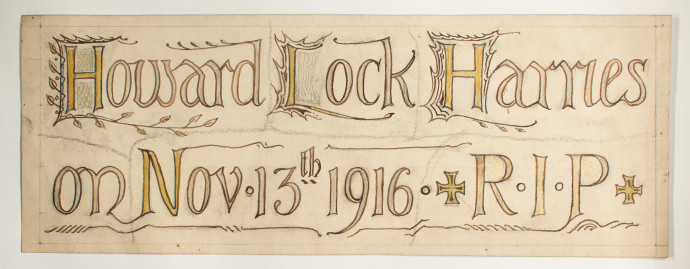 Howard Lock Harries
on Nov · 13th 1916 · ✠ R · I · P ✠